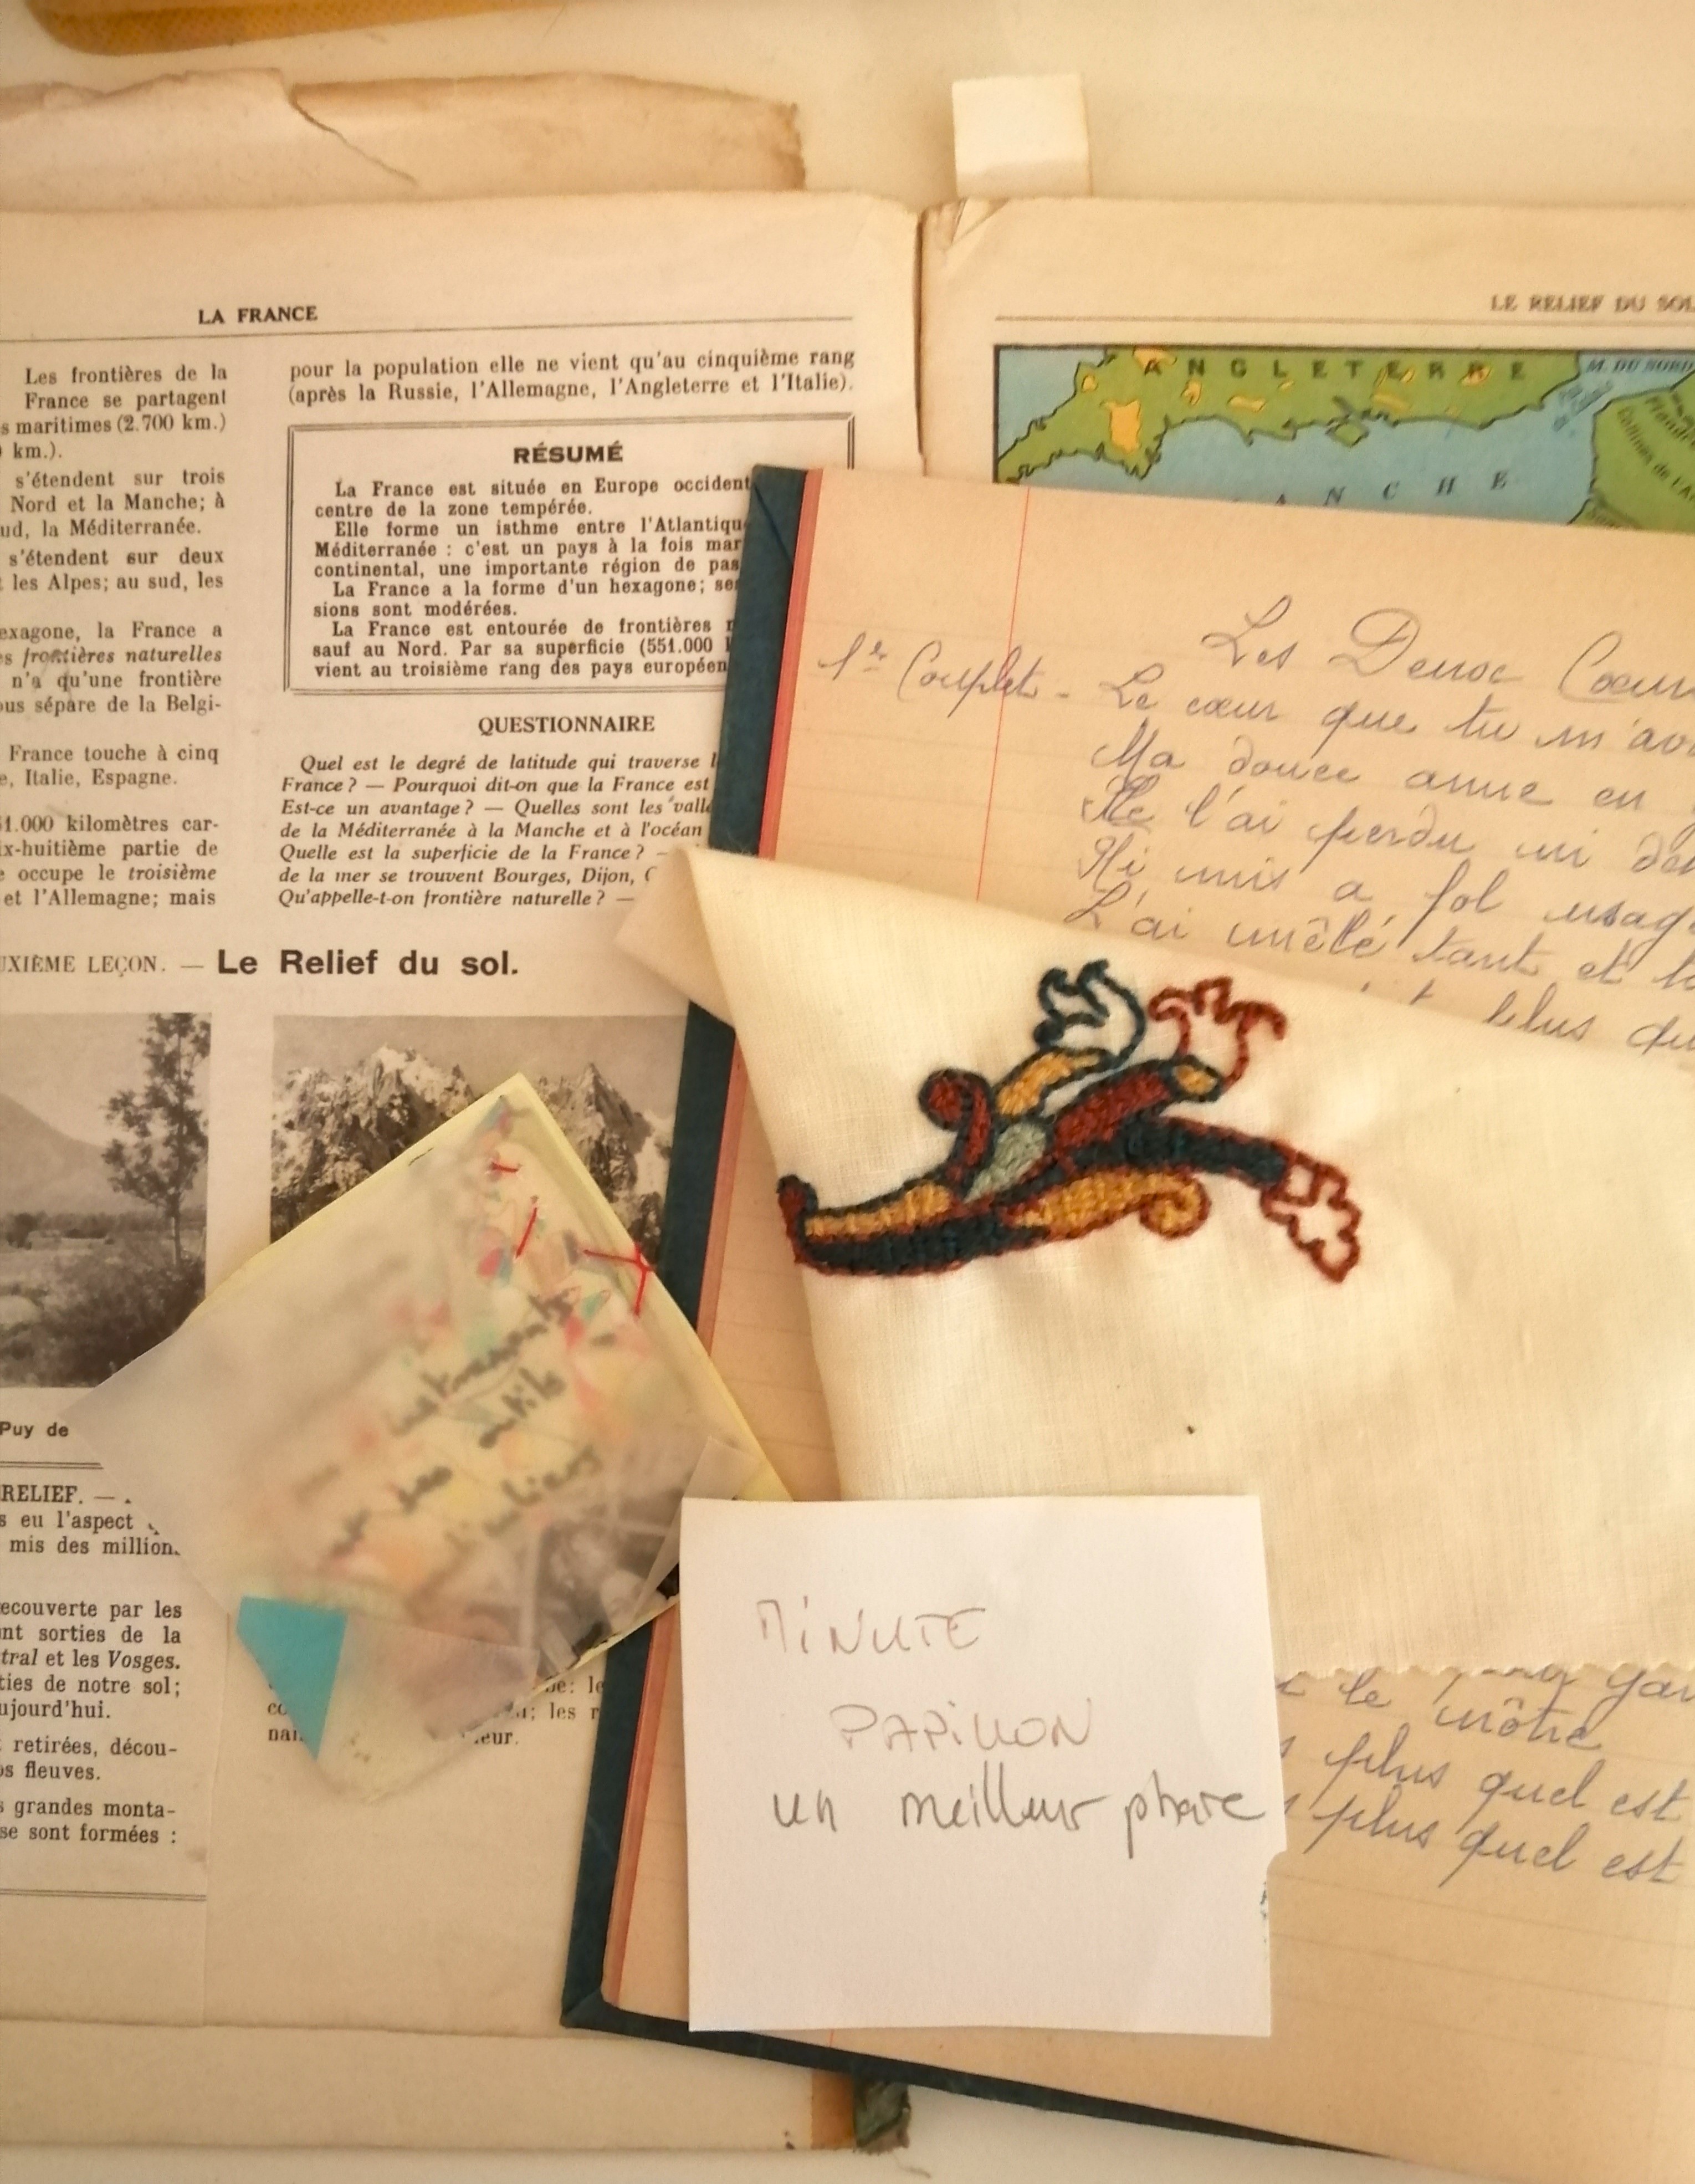 LA FRANCE
Les frontières de la
France se partagent
s maritimes (2.700 km.)
km.).
s'étendent sur trois
Nord et la Manche; à
ud, la Méditerranée.
s'étendent sur deux
les Alpes; au sud, les
exagone, la France a
s frontières naturelles
n'a qu'une frontière
ous sépare de la Belgi-
France touche à cinq
e, Italie, Espagne.
1.000 kilomètres car-
ix-huitième partie de
e occupe le troisième
et l'Allemagne; mais
pour la population elle ne vient qu'au cinquième rang
(après la Russie, l'Allemagne, l'Angleterre et l'Italie).
RÉSUMÉ
La France est située en Europe occident
centre de la zone tempérée.
Elle forme un isthme entre l'Atlantiqu
Méditerranée : c'est un pays à la fois mar
continental, une importante région de pas
La France a la forme d'un hexagone; se
sions sont modérées.
La France est entourée de frontières
sauf au Nord. Par sa superficie (551.000
vient au troisième rang des pays européen
QUESTIONNAIRE
Quel est le degré de latitude qui traverse l
France ? — Pourquoi dit-on que la France est
Est-ce un avantage ? — Quelles sont les vall
de la Méditerranée à la Manche et à l'océan
Quelle est la superficie de la France ? —
de la mer se trouvent Bourges, Dijon,
Qu'appelle-t-on frontière naturelle ? —
UXIÈME LEÇON. — Le Relief du sol.
Puy de
RELIEF. —
s eu l'aspect
mis des million
ecouverte par les
nt sorties de la
tral et les Vosges.
ties de notre sol;
ujourd'hui.
retirées, décou-
os fleuves.
s grandes monta-
se sont formées :
les r
eur.
LE RELIEF DU SOL
ANGLETERRE
M. DU NORD
ANCHE
Les Deux Cœur
1er Couplet - Le cœur que tu m'av
Ma douce amie en
Ne l'ai perdu ni don
Ni mis a fol usag
L'ai mêlé tant et t
plus qu
le nôtre
plus quel est
plus quel est
instruments
outils
ateliers
MINUTE
PAPILLON
un meilleur phare